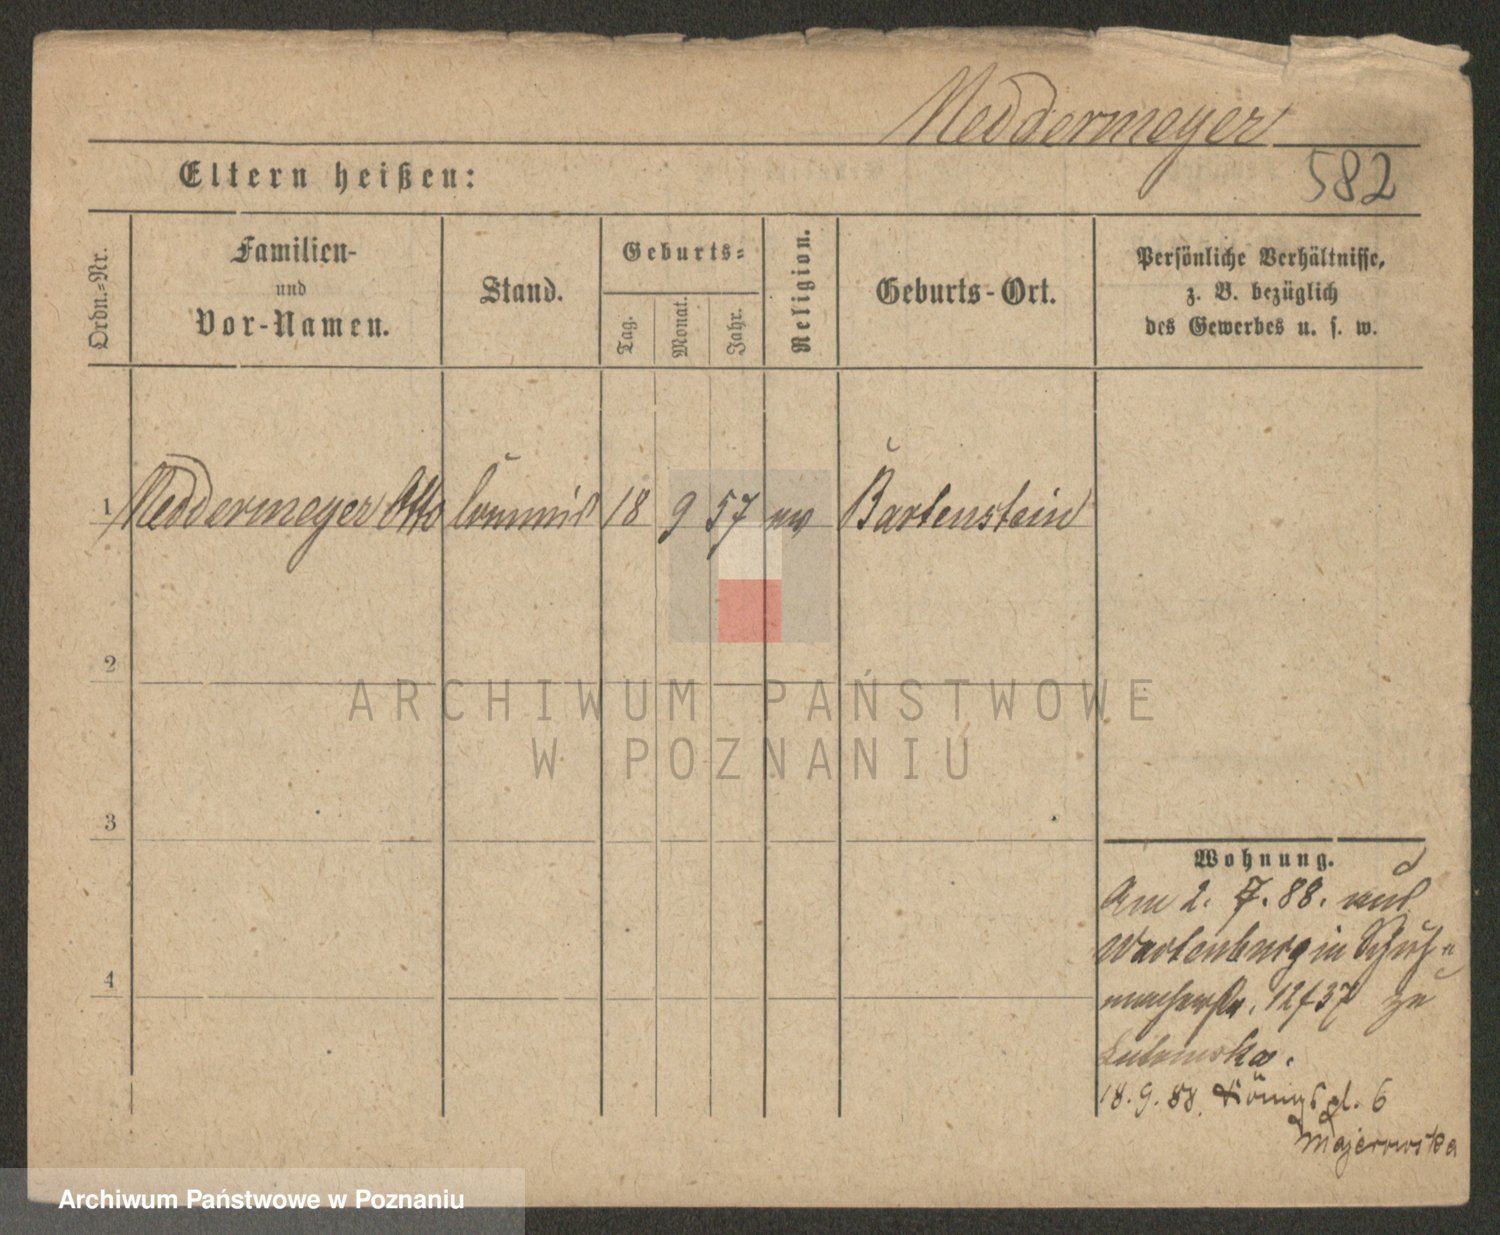 Neddermeyer
Eltern heißen:
582
Ordn.-Nr.
Familien-
und
Vor-Namen.
Stand.
Geburts-
Tag.
Monat.
Jahr.
Religion.
Geburts-Ort.
Persönliche Verhältnisse,
z. B. bezüglich
des Gewerbes u. s. w.
1 Neddermeyer Otto Commis 18 9 57 ev Bartenstein
2
3
4
Wohnung.
Am 2. 7. 88. aus
Wartenburg in Schuh-
macherstr. 12/37 zu
18.9.88. Königspl. 6
Majerowska
ARCHIWUM PAŃSTWOWE
W POZNANIU
Archiwum Państwowe w Poznaniu